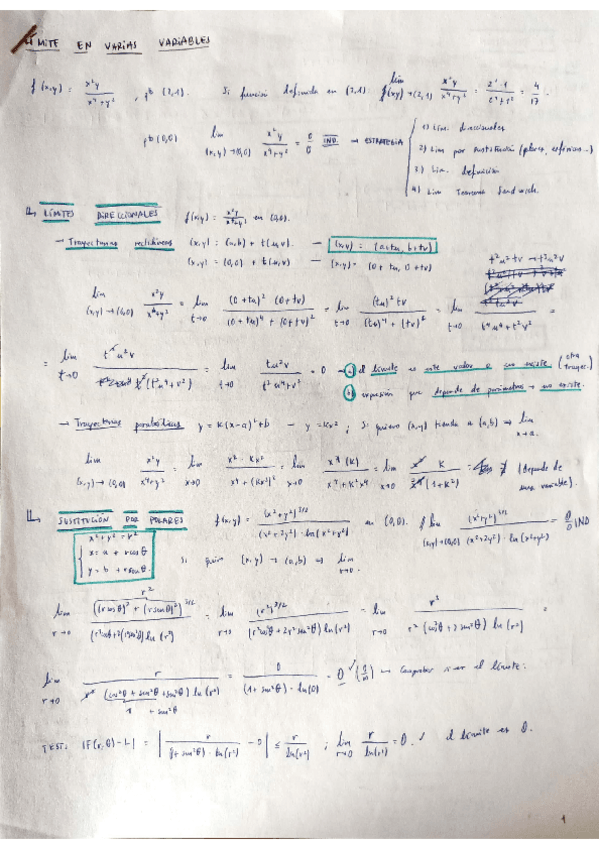 LÍMITE EN VARIAS VARIABLES
f(x,y) = x²y / (x⁴+y²) , pto (2,1). Si función definida en (2,1). lim f(x,y)→(2,1) x²y / (x⁴+y²) = 2²·1 / (2⁴+1²) = 4/17.
pto (0,0) lim (x,y)→(0,0) x²y / (x⁴+y²) = 0/0 IND → ESTRATEGIA
1) Lim. direccionales
2) Lim por sustitución (polares, esféricas...)
3) Lim. definición
4) Lim Teorema Sandwich.
LÍMITES DIRECCIONALES f(x,y) = x²y / (x⁴+y²), en (0,0).
- Trayectorias rectilíneas (x,y) = (a,b) + t(u,v). - (x,y) = (a+tu, b+tv)
(x,y) = (0,0) + t(u,v) - (x,y) = (0+tu, 0+tv)
t²u²·tv → t³u²v
lim (x,y)→(0,0) x²y / (x⁴+y²) = lim t→0 (0+tu)² (0+tv) / ((0+tu)⁴ + (0+tv)²) = lim t→0 (tu)² tv / ((tu)⁴ + (tv)²) = lim t→0 t³u²v / (t⁴u⁴+t²v²) =
= lim t→0 t³u²v / (t²(t²u⁴+v²)) = lim t→0 tu²v / (t²u⁴+v²) = 0 → el límite es este valor o no existe (otra trayec.)
expresión que depende de parámetros → no existe.
- Trayectorias parabólicas y = K(x-a)²+b - y = Kx² ; Si quiero (x,y) tienda a (a,b) ⇒ lim x→a.
lim (x,y)→(0,0) x²y / (x⁴+y²) = lim x→0 x²·Kx² / (x⁴+(Kx²)²) = lim x→0 x⁴(K) / (x⁴+K²x⁴) = lim x→0 x⁴ K / (x⁴(1+K²)) = ∄ (depende de una variable).
SUSTITUCIÓN POR POLARES f(x,y) = (x²+y²)^(3/2) / ((x²+2y²)·ln(x²+y²)) en (0,0). lim (x,y)→(0,0) (x²+y²)^(3/2) / ((x²+2y²)·ln(x²+y²)) = 0/0 IND
x²+y² = r²
x = a + r cosθ
y = b + r senθ.
Si quiero (x,y) → (a,b) ⇒ lim r→0.
r²
lim r→0 ((r cosθ)² + (r senθ)²)^(3/2) / ((r²cos²θ+2(r²sen²θ)) ln(r²)) = lim r→0 (r²)^(3/2) / ((r²cos²θ+2r²sen²θ) ln(r²)) = lim r→0 r³ / (r²(cos²θ+2sen²θ) ln(r²)) =
lim r→0 r / ((cos²θ+sen²θ+sen²θ) ln(r²)) = 0 / ((1+sen²θ)·ln(0)) = 0 → Comprobar si es el límite:
1 + sen²θ
TEST: |F(r,θ)-L| = | r / ((1+sen²θ)·ln(r²)) - 0 | ≤ r / ln(r²) ; lim r→0 r / ln(r²) = 0. ✓ el límite es 0.
1